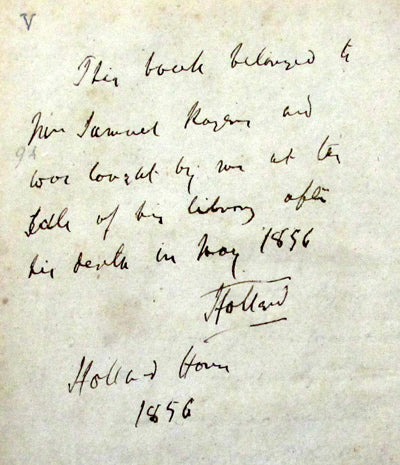 V
This book belonged to
Mr Samuel Rogers and
was bought by me at the
Sale of his library after
his death in May 1856
Holland
Holland House
1856